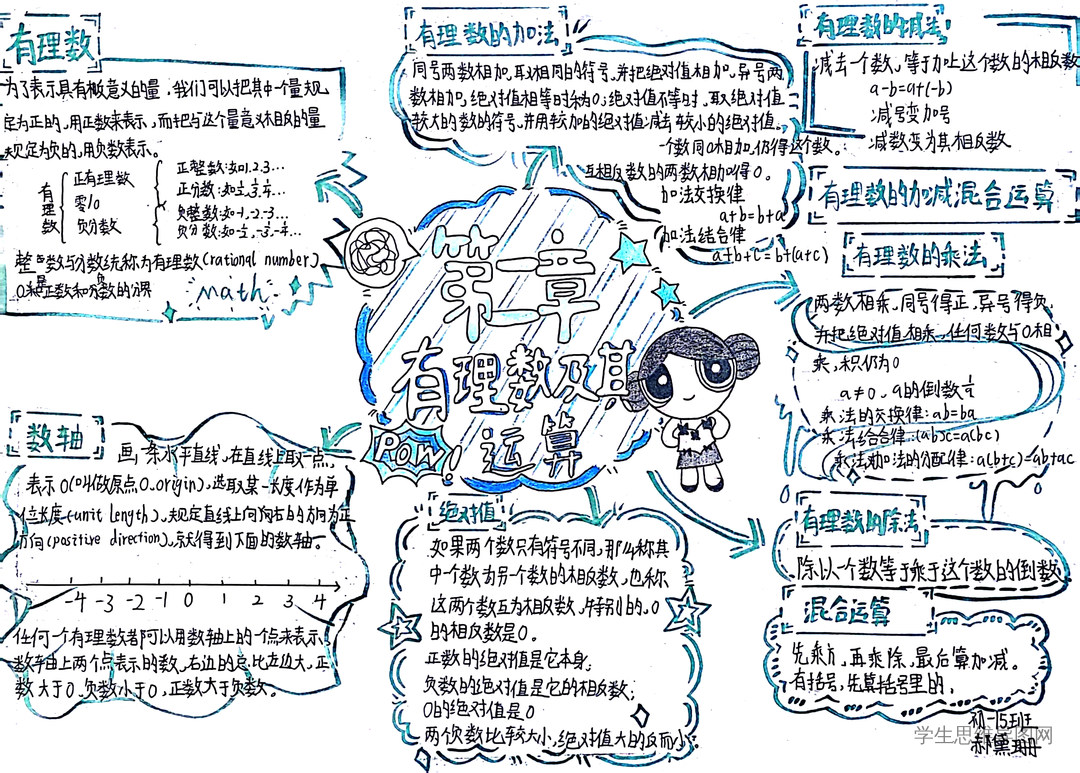 有理数
为了表示具有相反意义的量，我们可以把其中一个量规
定为正的，用正数来表示，而把与这个量意义相反的量
规定为负的，用负数表示。
有理数
正有理数
零/0
负分数
正整数:如1,2,3…
正分数:如
负整数:如-1,-2,-3…
负分数:如
整数与分数统称为有理数(rational number)
math
数轴
画一条水平直线，在直线上取一点，
表示0(叫做原点0.origin)，选取某一长度作为单
位长度(unit length)，规定直线上向右的方向为正
方向(positive direction)，就得到下面的数轴。
-4 -3 -2 -1 0 1 2 3 4
任何一个有理数都可以用数轴上的一个点来表示
数轴上两个点表示的数，右边的总比左边大，正
数大于0，负数小于0，正数大于负数。
有理数的加法
同号两数相加，取相同的符号，并把绝对值相加，异号两
数相加，绝对值相等时和为0；绝对值不等时，取绝对值
较大的数的符号，并用较大的绝对值减去较小的绝对值。
一个数同0相加，仍得这个数。
互相反数的两数相加得0。
加法交换律
a+b=b+a
加法结合律
a+b+c=b+(a+c)
第二章
有理数及其
运算
POW!
绝对值
如果两个数只有符号不同，那么称其
中一个数为另一个数的相反数，也称
这两个数互为相反数，特别的，0
的相反数是0。
正数的绝对值是它本身；
负数的绝对值是它的相反数；
0的绝对值是0
两个负数比较大小，绝对值大的反而小
有理数的减法
减去一个数，等于加上这个数的相反数
a-b=a+(-b)
减号变加号
减数变为其相反数
有理数的加减混合运算
有理数的乘法
两数相乘，同号得正，异号得负，
并把绝对值相乘，任何数与0相
乘，积仍为0
a≠0，a的倒数1/a
乘法的交换律：ab=ba
乘法结合律：(ab)c=a(bc)
乘法对加法的分配律：a(b+c)=ab+ac
有理数的除法
除以一个数等于乘于这个数的倒数
混合运算
先乘方，再乘除，最后算加减。
有括号，先算括号里的，
初一15班
郝黛珊
学生思维导图网